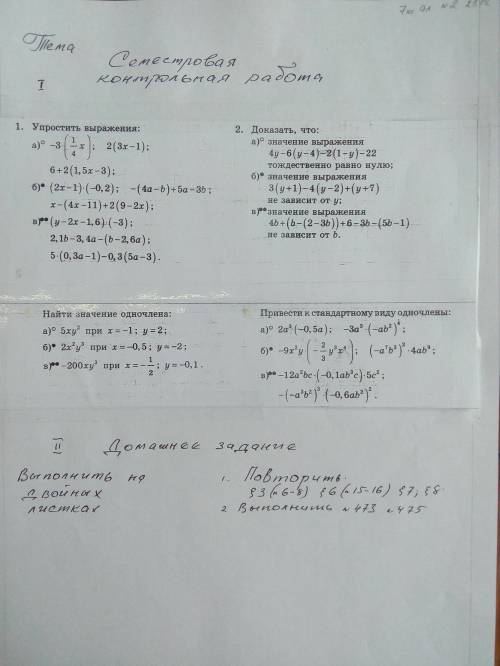 7 кл
Тема
Семестровая
контрольная работа
I
1. Упростить выражения:
а)° -3·(1/4 x); 2(3x-1);
6+2(1,5x-3);
б)• (2x-1)·(-0,2); -(4a-b)+5a-3b;
x-(4x-11)+2(9-2x);
в)•• (y-2x-1,6)·(-3);
2,1b-3,4a-(b-2,6a);
5·(0,3a-1)-0,3(5a-3).
2. Доказать, что:
а)° значение выражения
4y-6(y-4)-2(1-y)-22
тождественно равно нулю;
б)• значение выражения
3(y+1)-4(y-2)+(y+7)
не зависит от y;
в)•• значение выражения
4b+(b-(2-3b))+6-3b-(5b-1)
не зависит от b.
Найти значение одночлена:
а)° 5xy² при x=-1; y=2;
б)• 2x²y³ при x=-0,5; y=-2;
в)•• -200xy³ при x=-1/2; y=-0,1.
Привести к стандартному виду одночлены:
б)• -9x³y
в)•• -12a²bc·(-0,1ab³c)·5c²;
-(-a³b²)³·(-0,6ab³)².
II Домашнее задание
Выполнить на
двойных
листках
1. Повторить
§3 (п6-8) §6 (п15-16) §7; §8.
2. Выполнить №473 №475